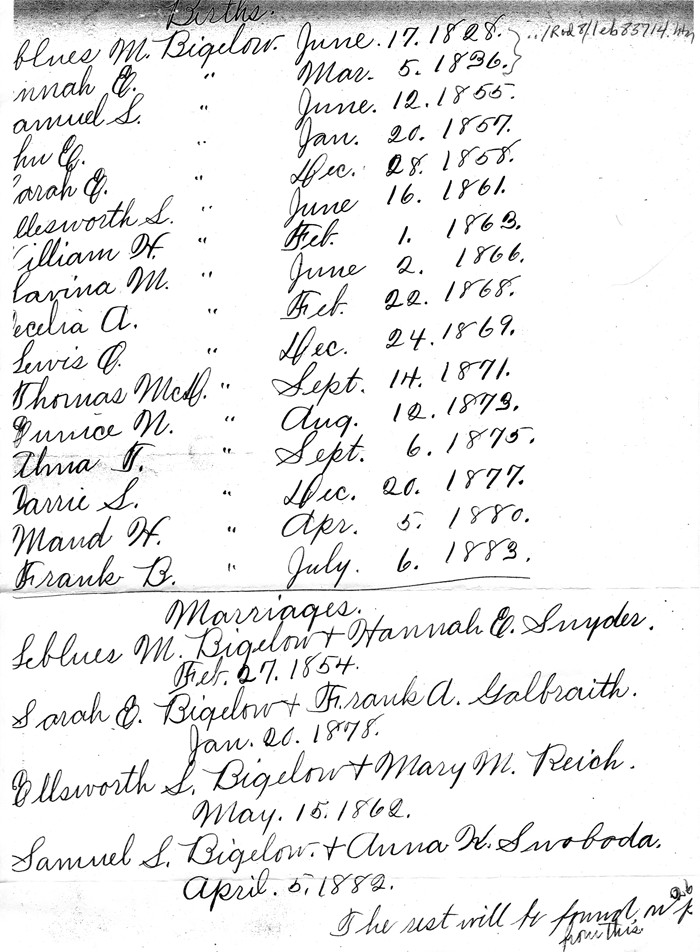 Births.
blues M. Bigelow. June. 17. 1828.
nnah E. " Mar. 5. 1836.
amuel S. " June. 12. 1855.
hn E. " Jan. 20. 1857.
arah E. " Dec. 28. 1858.
llesworth S. " June 16. 1861.
illiam H. " Feb. 1. 1863.
Lavina M. " June 2. 1866.
ecelia A. " Feb. 22. 1868.
Lewis O. " Dec. 24. 1869.
Thomas McD. " Sept. 14. 1871.
Eunice N. " Aug. 12. 1873.
Alma T. " Sept. 6. 1875.
Carrie S. " Dec. 20. 1877.
Maud H. " Apr. 5. 1880.
Frank B. " July. 6. 1883.
Marriages.
Leblues M. Bigelow + Hannah E. Snyder.
Feb. 27. 1854.
Sarah E. Bigelow + Frank A. Galbraith.
Jan. 20. 1878.
Ellsworth S. Bigelow + Mary M. Reich.
May. 15. 1862.
Samuel S. Bigelow. + Anna K. Swoboda.
April. 5. 1882.
The rest will be found
from this